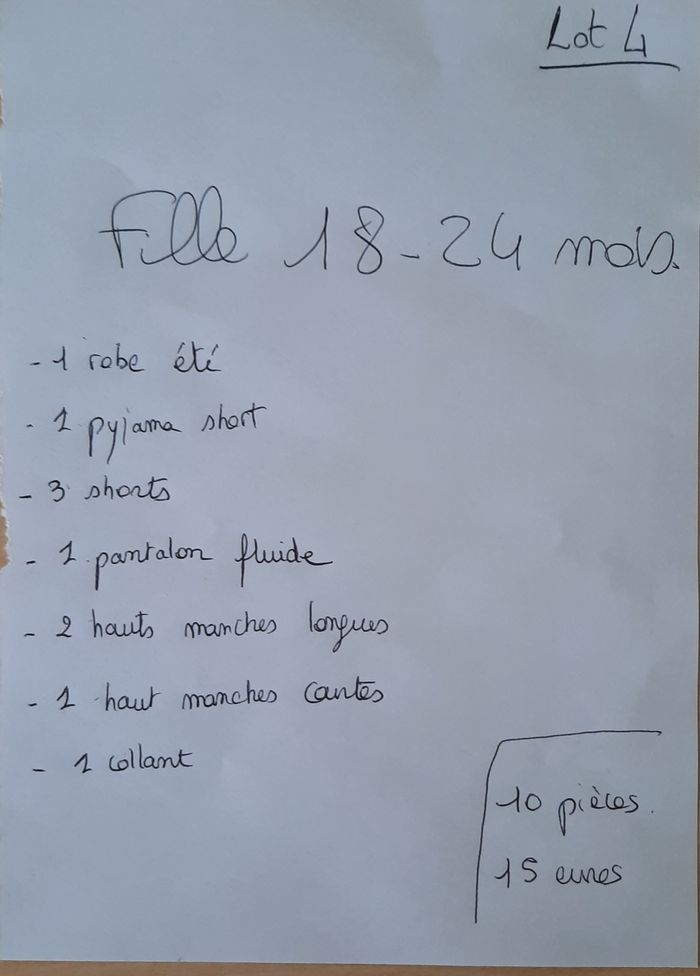 Lot 4
Fille 18-24 mois.
- 1 robe été
- 1 pyjama short
- 3 shorts
- 1 pantalon fluide
- 2 hauts manches longues
- 1 haut manches courtes
- 1 collant
10 pièces.
15 euros